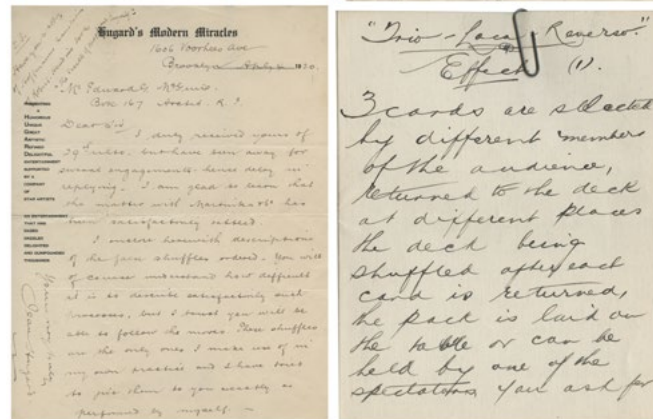 Hugard's Modern Miracles
1606 Voorhees Ave
Brooklyn
1930.
Mr Edward G McGuire
Box 167
Dear Sir
I duly received yours of
29th ulto. but have been away for
several engagements hence delay in
replying. I am glad to learn that
the matter with has
been satisfactorily settled.
I enclose herewith descriptions
of the shuffles ordered. You will
of course understand how difficult
it is to describe satisfactorily such
processes, but I trust you will be
able to follow the moves. These shuffles
are the only ones I make use of in
my own practice and I have tried
to give them to you exactly as
performed by myself. —
HUMOROUS
UNIQUE
GREAT
ARTISTIC
REFINED
DELIGHTFUL
ENTERTAINMENT
SUPPORTED
BY A
COMPANY
OF
STAR ARTISTS
AN ENTERTAINMENT
THAT HAS
DELIGHTED
Yours very truly
Jean Hugard
"Trio-Loca Reverso."
Effect (1).
3 cards are selected
by different members
of the audience,
returned to the deck
at different places
the deck being
shuffled after each
card is returned,
the pack is laid on
the table or can be
held by one of the
spectators you ask for